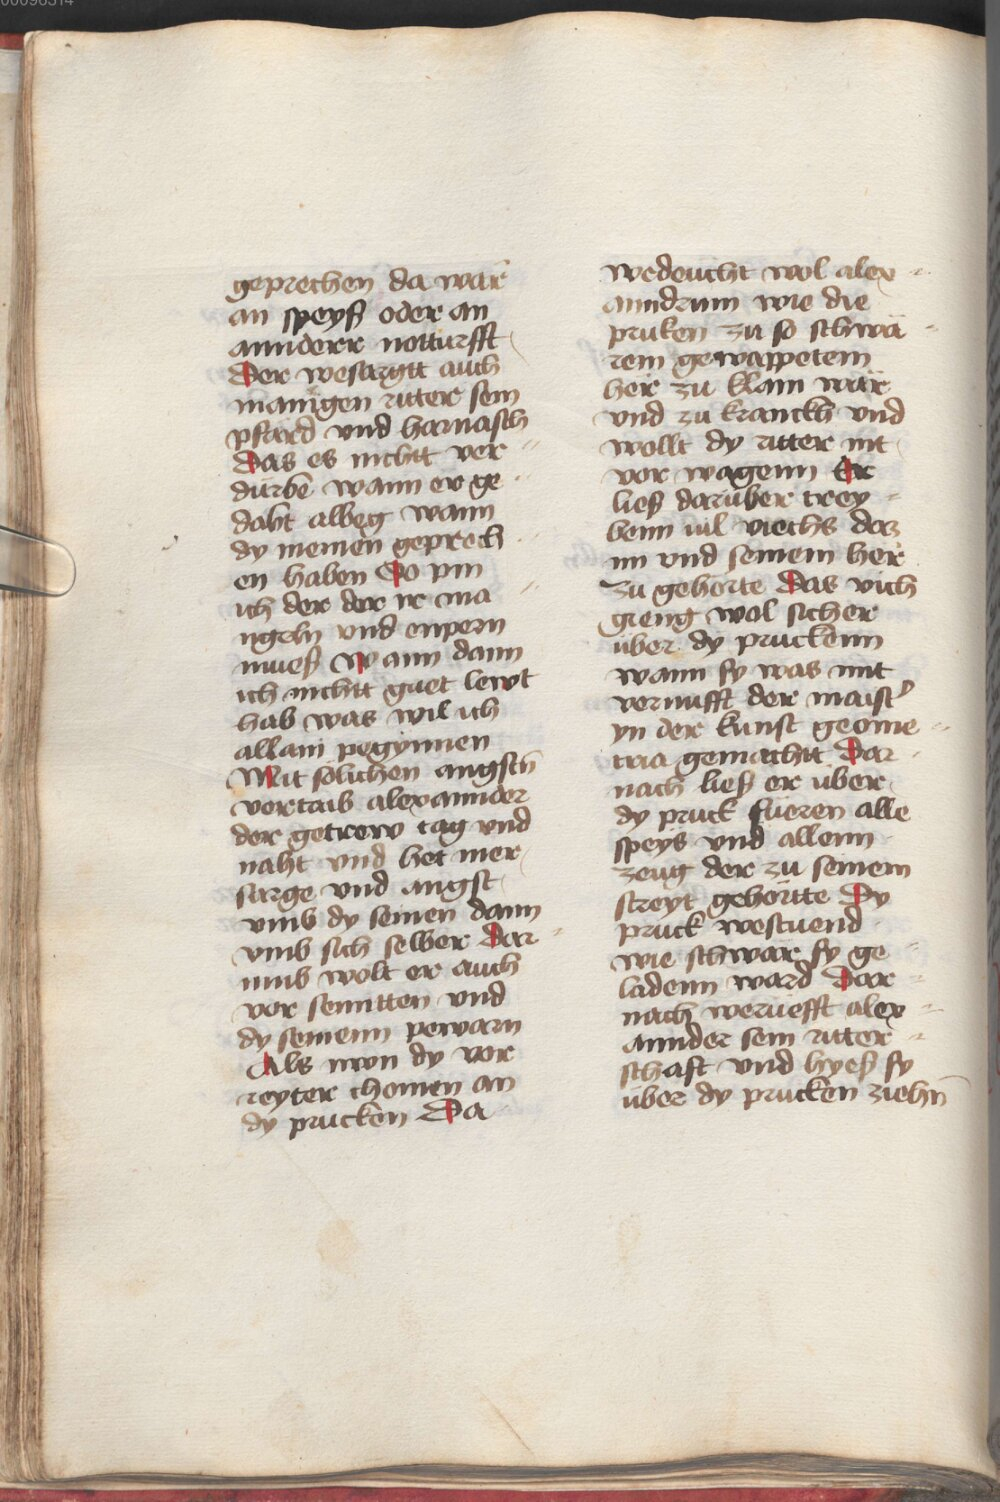 geprechen da wär
an speyß oder an
annderr notturfft
Der wesargtt auch
manigen ritter sein
pfard vnd harnasch
Das es nichtt ver
durbe wann er ge
daht albeg wann
dy meinen geprech
en haben So pin
ich der der ir ma
ngeln vnd enpern
mueß Wann dann
ich nichtt guet lewt
hab was wil ich
allain pegynnen
Mit solichen angstn
vertraib alexannder
der getrew tag vnd
naht vnd het mer
sarge vnd angst
vmb dy seinen dann
vmb sich selber Dar
umb wolt er auch
vor senntten vnd
dy seinenn pewarn
Als nwn dy vor
reyter chomen an
dy prucken Da
wedeucht wol alex
anndrum wie die
pruken zu so schwä
rem gewappetem
her zu klain wär
vnd zu kranckh vnd
wollt dy ritter nit
vor wagenn Er
ließ daruber trey
benn uil viechs daz
im vnd seinem her
zu gehorte Das vich
gieng wol sicher
uber dy pruckenn
wann sy was mit
vernufft der maist
yn der kunst geome
tria gemachtt Dar
nach ließ er uber
dy pruck fueren alle
speys vnd allenn
zeug der zu seinem
streyt gehortte Dy
pruck westuend
wie schwar sy ge
ladenn ward Dar
nach weruefft alex
annder sein ritter
schaft vnd hyeß sy
uber dy prucken ziehn
00096314